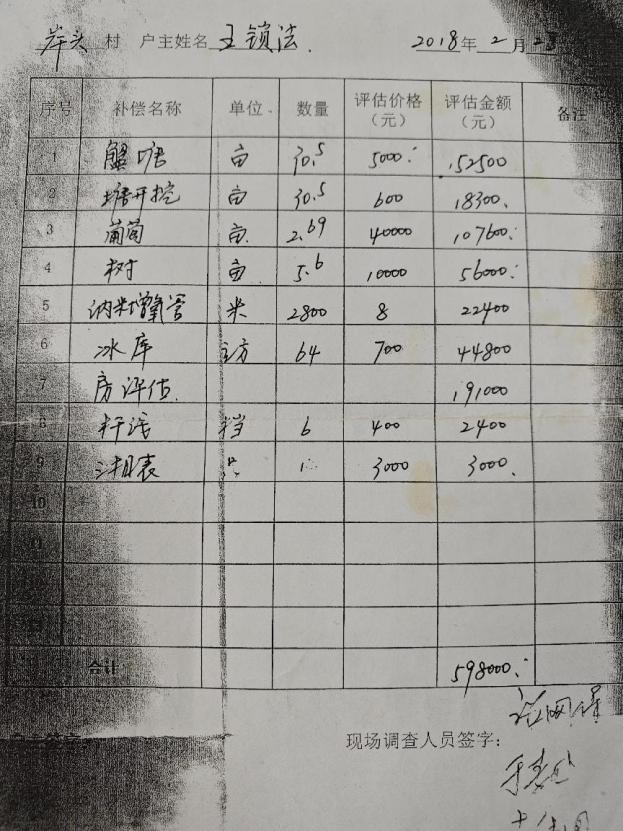 岸头 村 户主姓名 王锁法. 2018年 2 月 23
序号 补偿名称 单位 数量 评估价格（元） 评估金额（元） 备注
1 蟹塘 亩 30.5 5000 152500
2 塘开挖 亩 30.5 600 18300
3 葡萄 亩 2.69 40000 107600
4 树 亩 5.6 10000 56000
5 纳米增氧管 米 2800 8 22400
6 冰库 立方 64 700 44800
7 房评估 191000
8 杆线 档 6 400 2400
9 三相表 只 1 3000 3000
10
11
合计 598000
现场调查人员签字：